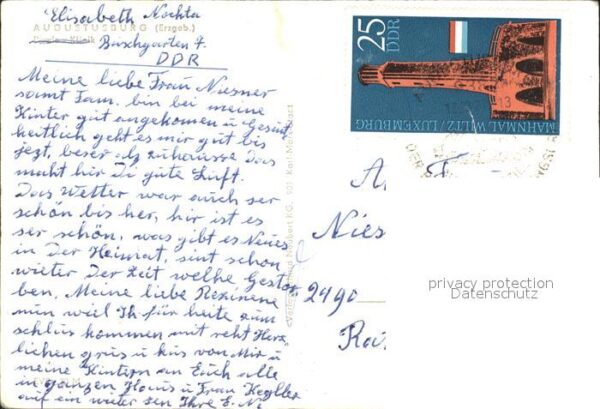 Elisabeth Nochta
AUGUSTUSBURG (Erzgeb.)
Klinik Buschgarten 7.
DDR
Meine liebe Frau Niesner
samt Fam. bin bei meine
Kinter gut angekomen u gesunt,
heitlich geht es mir gut bis
jezt, beser als zuhausse Das
maht hir Di gute Luft.
Das Wetter war auch ser
schön bis her, hir ist es
ser schön, was gibt es Neues
in Der Heimat, sint schon
wieter Der Zeit welhe Gestor,
ben. Meine liebe
nun weil Ih für heite zum
schlus kommen mit reht Herz,
lichen grus u kus von Mir u
meine Kintern an Euch alle
in ganzen Haus u Frau Kegller
auf ein wieter sen Ihre E. N
25
DDR
MAHNMAL WILTZ / LUXEMBURG
13
An
Nies
2490
privacy protection
Datenschutz